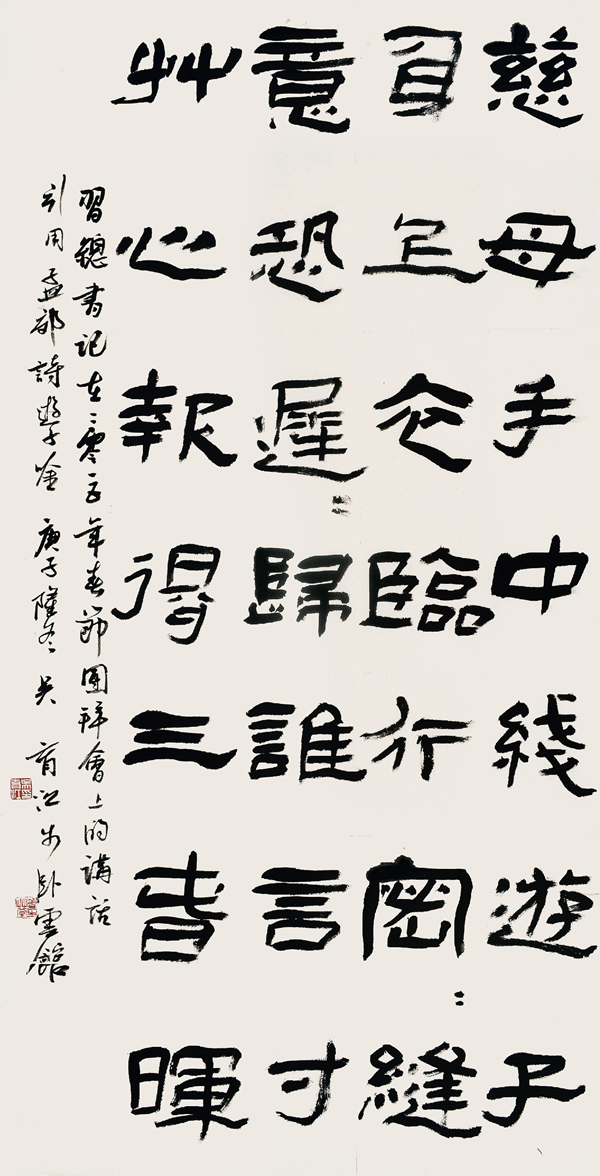 慈母手中綫遊子
身上衣臨行密〻縫
意恐遲〻歸誰言寸
艸心報得三春暉
習總書記在二零一五年春節團拜會上的講話
引用孟郊詩遊子吟 庚子隆冬 吴育江於卧雲館